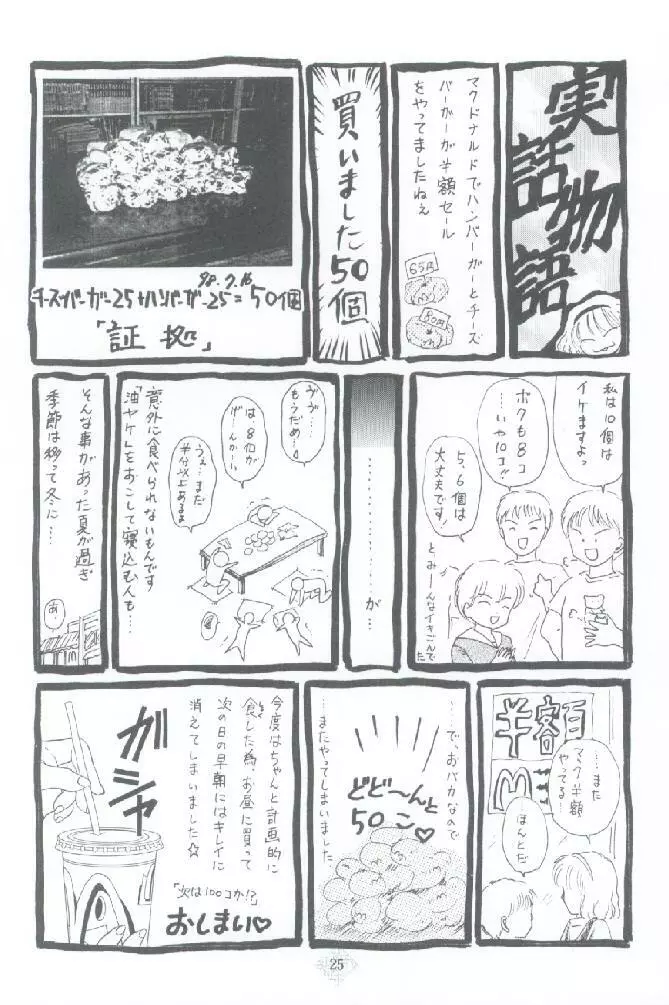 実話物語
マクドナルドでハンバーガーとチーズ
バーガーが半額セール
をやってましたねえ
65円
80円
買いました50個
'98.7.16
チーズバーガー25+ハンバーガー25=50個
「証拠」
私は10個は
イケますよっ
ボクも8コ
…いや10コ!!
5、6個は
大丈夫です!
とみーんなイキごんでた
…………が…
ヴヴ…
もうだめ…
は8個が
げ…んか…い
うぇ…まだ
半分以上あるよ
意外に食べられないもんです
「油ヤケ」をおこして寝込む人も…
そんな事があった夏が過ぎ
季節は移って冬に…
あ
半額
M
……また
マック半額
やってる
ほんとだ
……で、おバカなので
どど〜んと
50こ♡
…またやってしまいました
今度はちゃんと計画的に
食した為、お昼に買って
次の日の早朝にはキレイに
消えてしまいました☆
ガシャ
「次は100コか!?」
おしまい♡
25